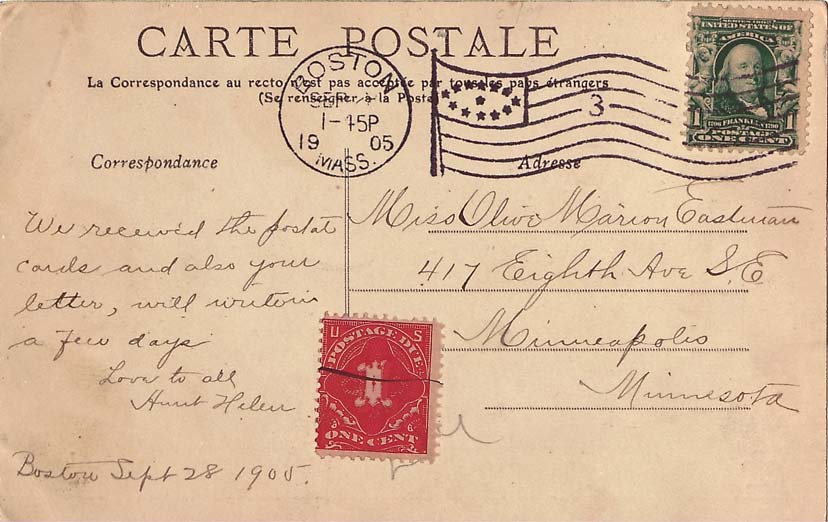 CARTE POSTALE
La Correspondance au recto n'est pas acceptée par tous les pays étrangers
(Se renseigner à la Poste)
Correspondance
Adresse
BOSTON
SEP
1-45P
1905
MASS.
3
SERIES 1902
UNITED STATES OF
AMERICA
1 1
1706 FRANKLIN 1790
POSTAGE
ONE CENT
We received the postal
cards and also your
letter, will write in
a few days
Love to all
Aunt Helen
Boston Sept 28 1905.
Miss Olive Marion Eastman
417 Eighth Ave S.E
Minneapolis
Minnesota
U S
POSTAGE DUE
1
ONE CENT